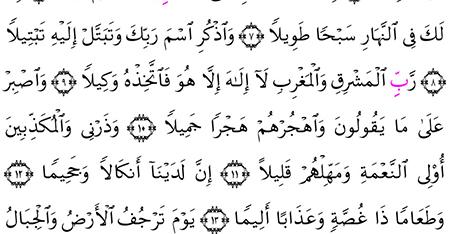 لَكَ فِى ٱلنَّهَارِ سَبْحًا طَوِيلًا ﴿٧﴾ وَٱذْكُرِ ٱسْمَ رَبِّكَ وَتَبَتَّلْ إِلَيْهِ تَبْتِيلًا
﴿٨﴾ رَّبِّ ٱلْمَشْرِقِ وَٱلْمَغْرِبِ لَآ إِلَٰهَ إِلَّا هُوَ فَٱتَّخِذْهُ وَكِيلًا ﴿٩﴾ وَٱصْبِرْ
عَلَىٰ مَا يَقُولُونَ وَٱهْجُرْهُمْ هَجْرًا جَمِيلًا ﴿١٠﴾ وَذَرْنِى وَٱلْمُكَذِّبِينَ
أُو۟لِى ٱلنَّعْمَةِ وَمَهِّلْهُمْ قَلِيلًا ﴿١١﴾ إِنَّ لَدَيْنَآ أَنكَالًا وَجَحِيمًا ﴿١٢﴾
وَطَعَامًا ذَا غُصَّةٍ وَعَذَابًا أَلِيمًا ﴿١٣﴾ يَوْمَ تَرْجُفُ ٱلْأَرْضُ وَٱلْجِبَالُ